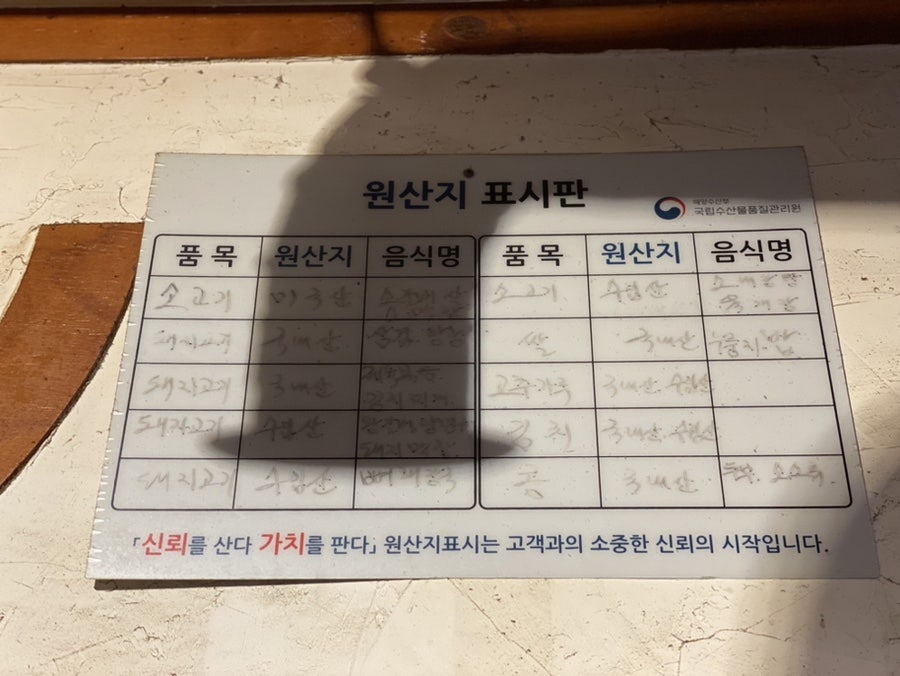 원산지 표시판
해양수산부
국립수산물품질관리원
품목 원산지 음식명 품목 원산지 음식명
소고기 미국산 소고기 수입산
돼지고기 국내산 쌀 국내산 누룽지, 밥
돼지고기 국내산 고추가루 국내산, 수입산
돼지고기 수입산 김치 국내산, 수입산
돼지고기 수입산 뼈해장국 콩 국내산
「신뢰를 산다 가치를 판다」 원산지표시는 고객과의 소중한 신뢰의 시작입니다.